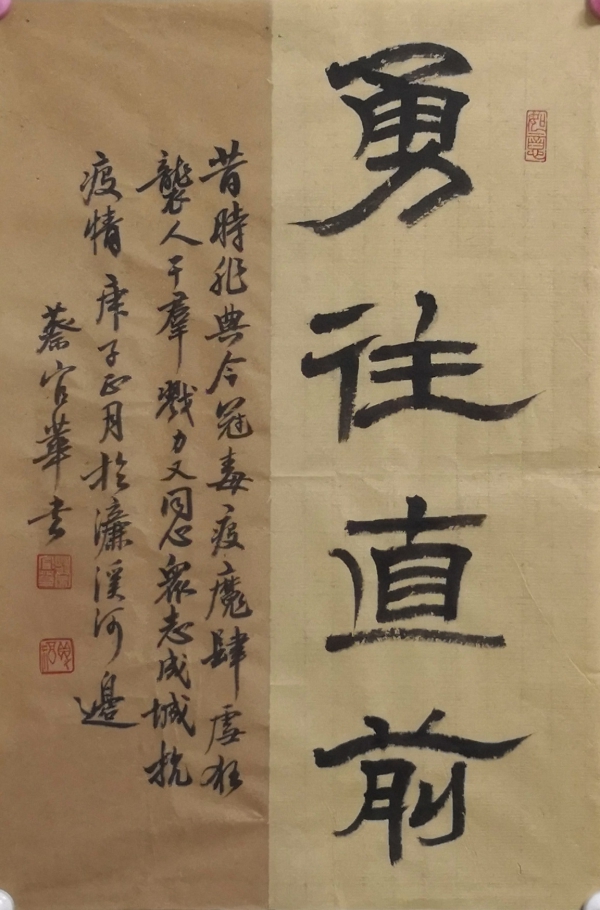 勇往直前
昔時非典今冠毒疫魔肆虐狂
襲人干羣戮力又同心衆志成城抗
疫情庚子正月於濂溪河邊
蔡官華书
如意